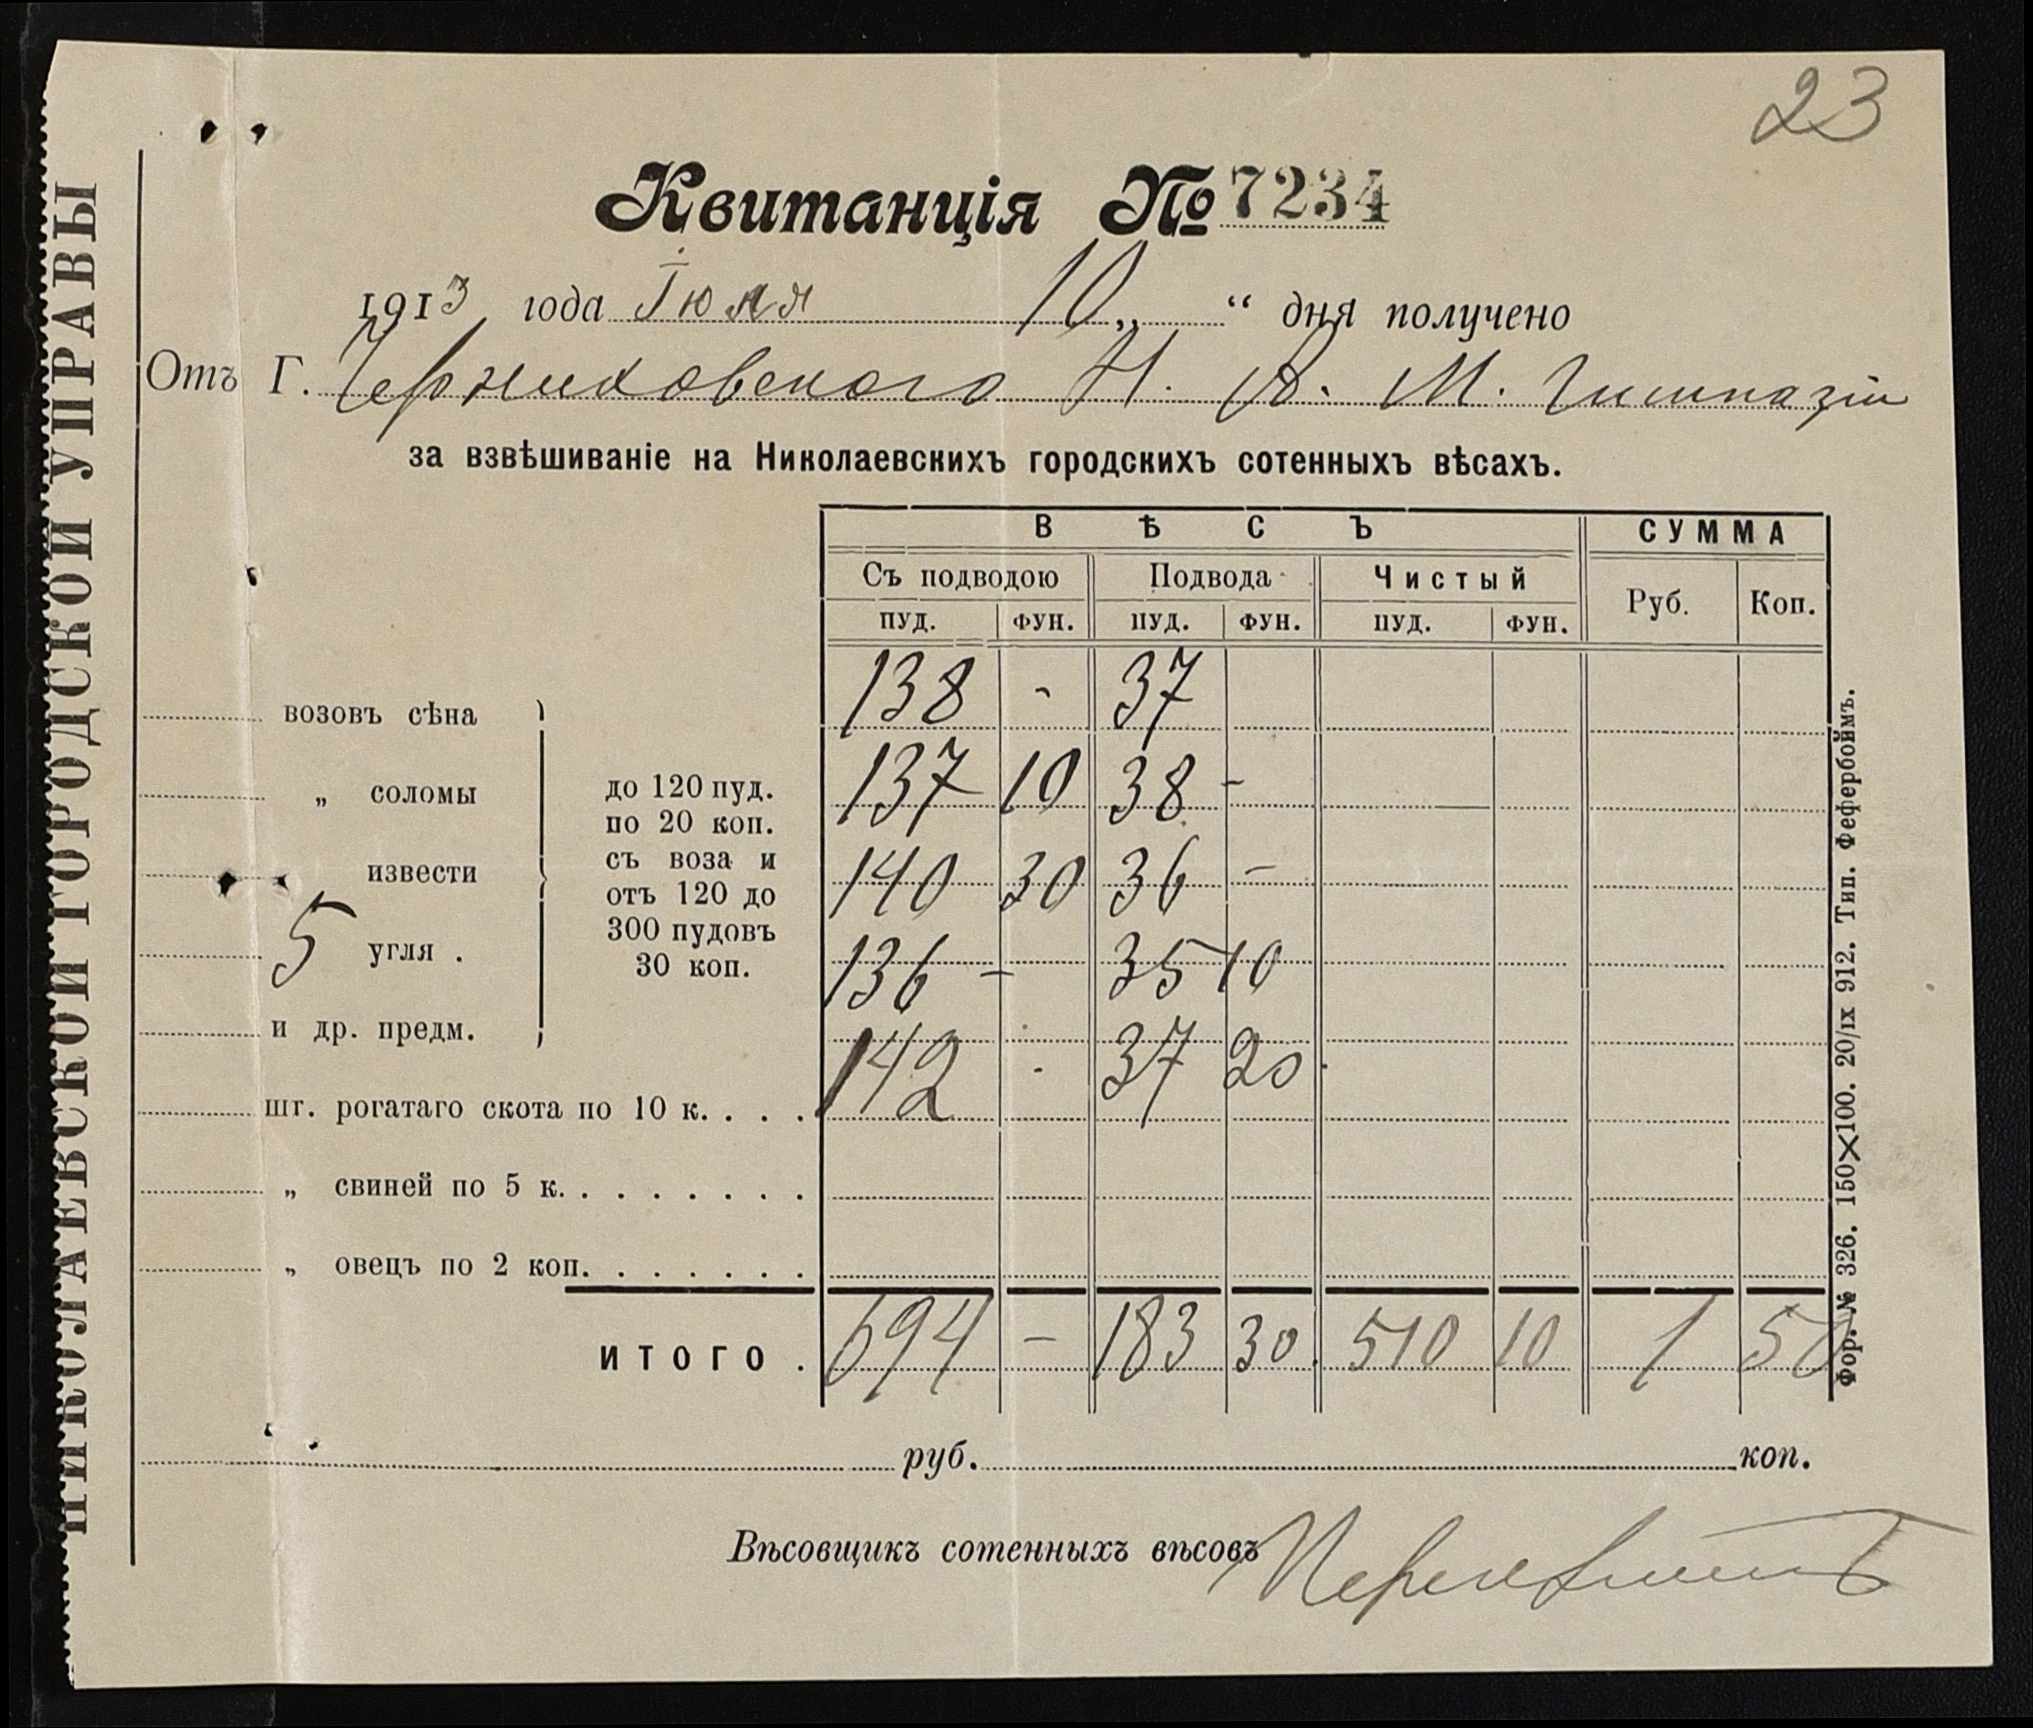 23
НИКОЛАЕВСКОЙ ГОРОДСКОЙ УПРАВЫ
Квитанція № 7234
1913 года Іюля 10 „ “ дня получено
Отъ Г. Черниховского Н. В. М. Гимназіи
за взвѣшиваніе на Николаевскихъ городскихъ сотенныхъ вѣсахъ.
ВѢСЪ СУММА
Съ подводою Подвода Чистый Руб. Коп.
пуд. фун. пуд. фун. пуд. фун.
возовъ сѣна 138 - 37
„ соломы до 120 пуд. 137 10 38 -
по 20 коп.
извести съ воза и 140 30 36 -
отъ 120 до
5 угля . 300 пудовъ 136 - 35 10
30 коп.
и др. предм. 142 - 37 20
шт. рогатаго скота по 10 к. . . .
„ свиней по 5 к. . . . . . . .
„ овецъ по 2 коп. . . . . . .
ИТОГО . 694 - 183 30 510 10 1 50
руб. коп.
Вѣсовщикъ сотенныхъ вѣсовъ
Фор. № 326. 150×100. 20/IX 912. Тип. Фефербоймъ.